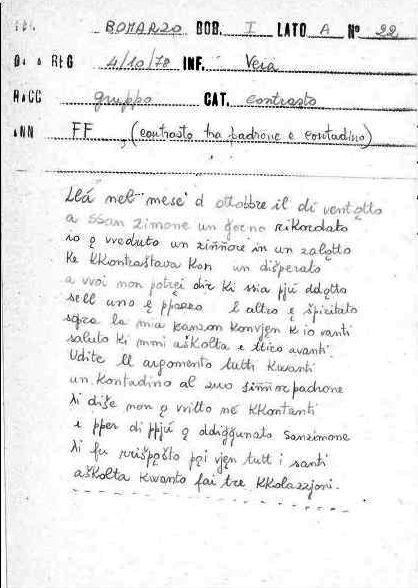 BOMARZO BOB. I LATO A Nº 22
REG 4/10/78 INF. Vera
RACC gruppo CAT. contrasto
ANN FF (contrasto tra padrone e contadino)
Llá nel mese d ottobbre il di ventǫtto
a SSan Zimone un ǧorno rikordato
io ǫ vveduto un ziññore in un zalǫtto
ke kkontraštava kon un dišperato
a vvoi non potrei dir ki ssia pjú ddǫtto
se ll uno ę ppazzo l altro ę špiritato
sǫpra la mia kanzon konvjen k io vanti
saluto ki mmi aškolta e ttiro avanti
Udite ll argomento tutti kwanti
un kontadino al suo siññor padrone
li diše non ǫ vvitto né kkontanti
e pper di ppjú ǫ ddiǧǧunato Sanzimone
li fu rrišpǫšto pǫi vjęn tutt i santi
aškolta kwanto fai tre kkolazzjoni.